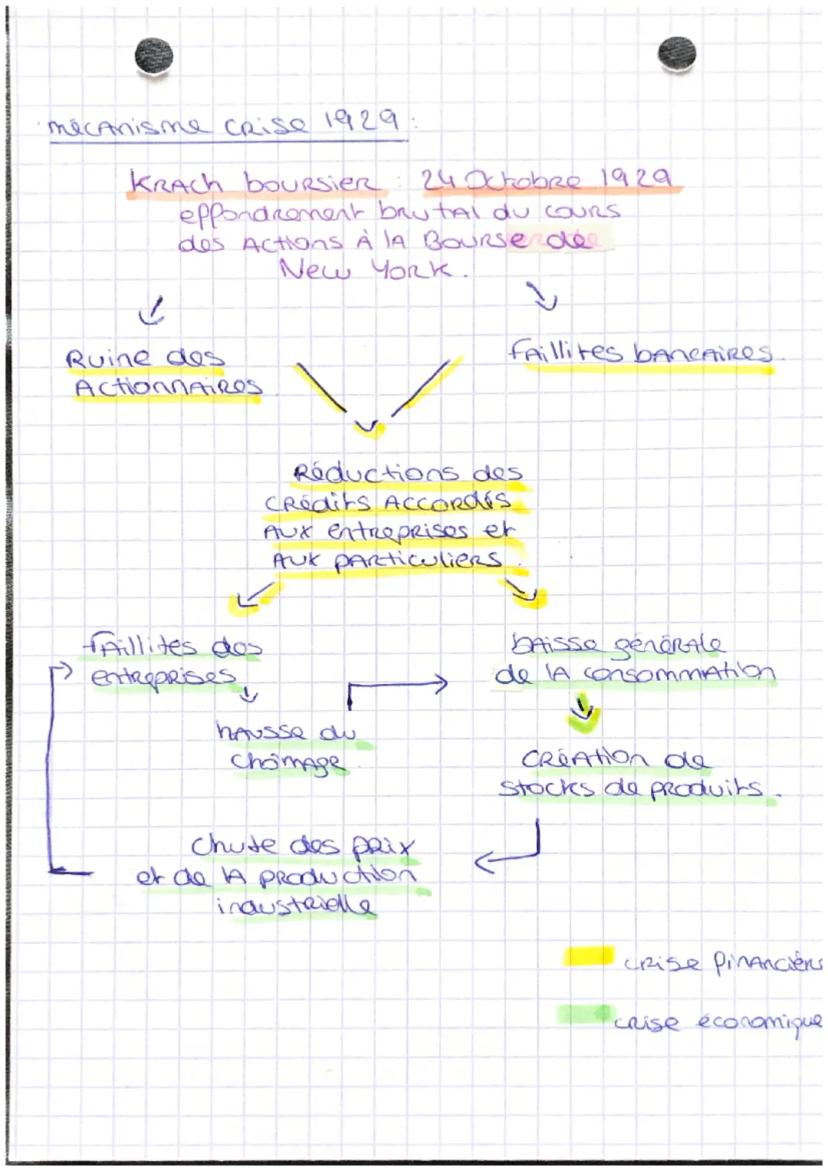 mécanisme crise 1929 :
Krach boursier : 24 Octobre 1929
effondrement brutal du cours
des Actions à la Bourse de
New York.
Ruine des
Actionnaires
faillites bancaires.
Réductions des
crédits accordés
aux entreprises et
aux particuliers.
faillites des
entreprises
baisse générale
de la consommation
hausse du
chômage
création de
stocks de produits.
chute des prix
et de la production
industrielle
crise financière
crise économique